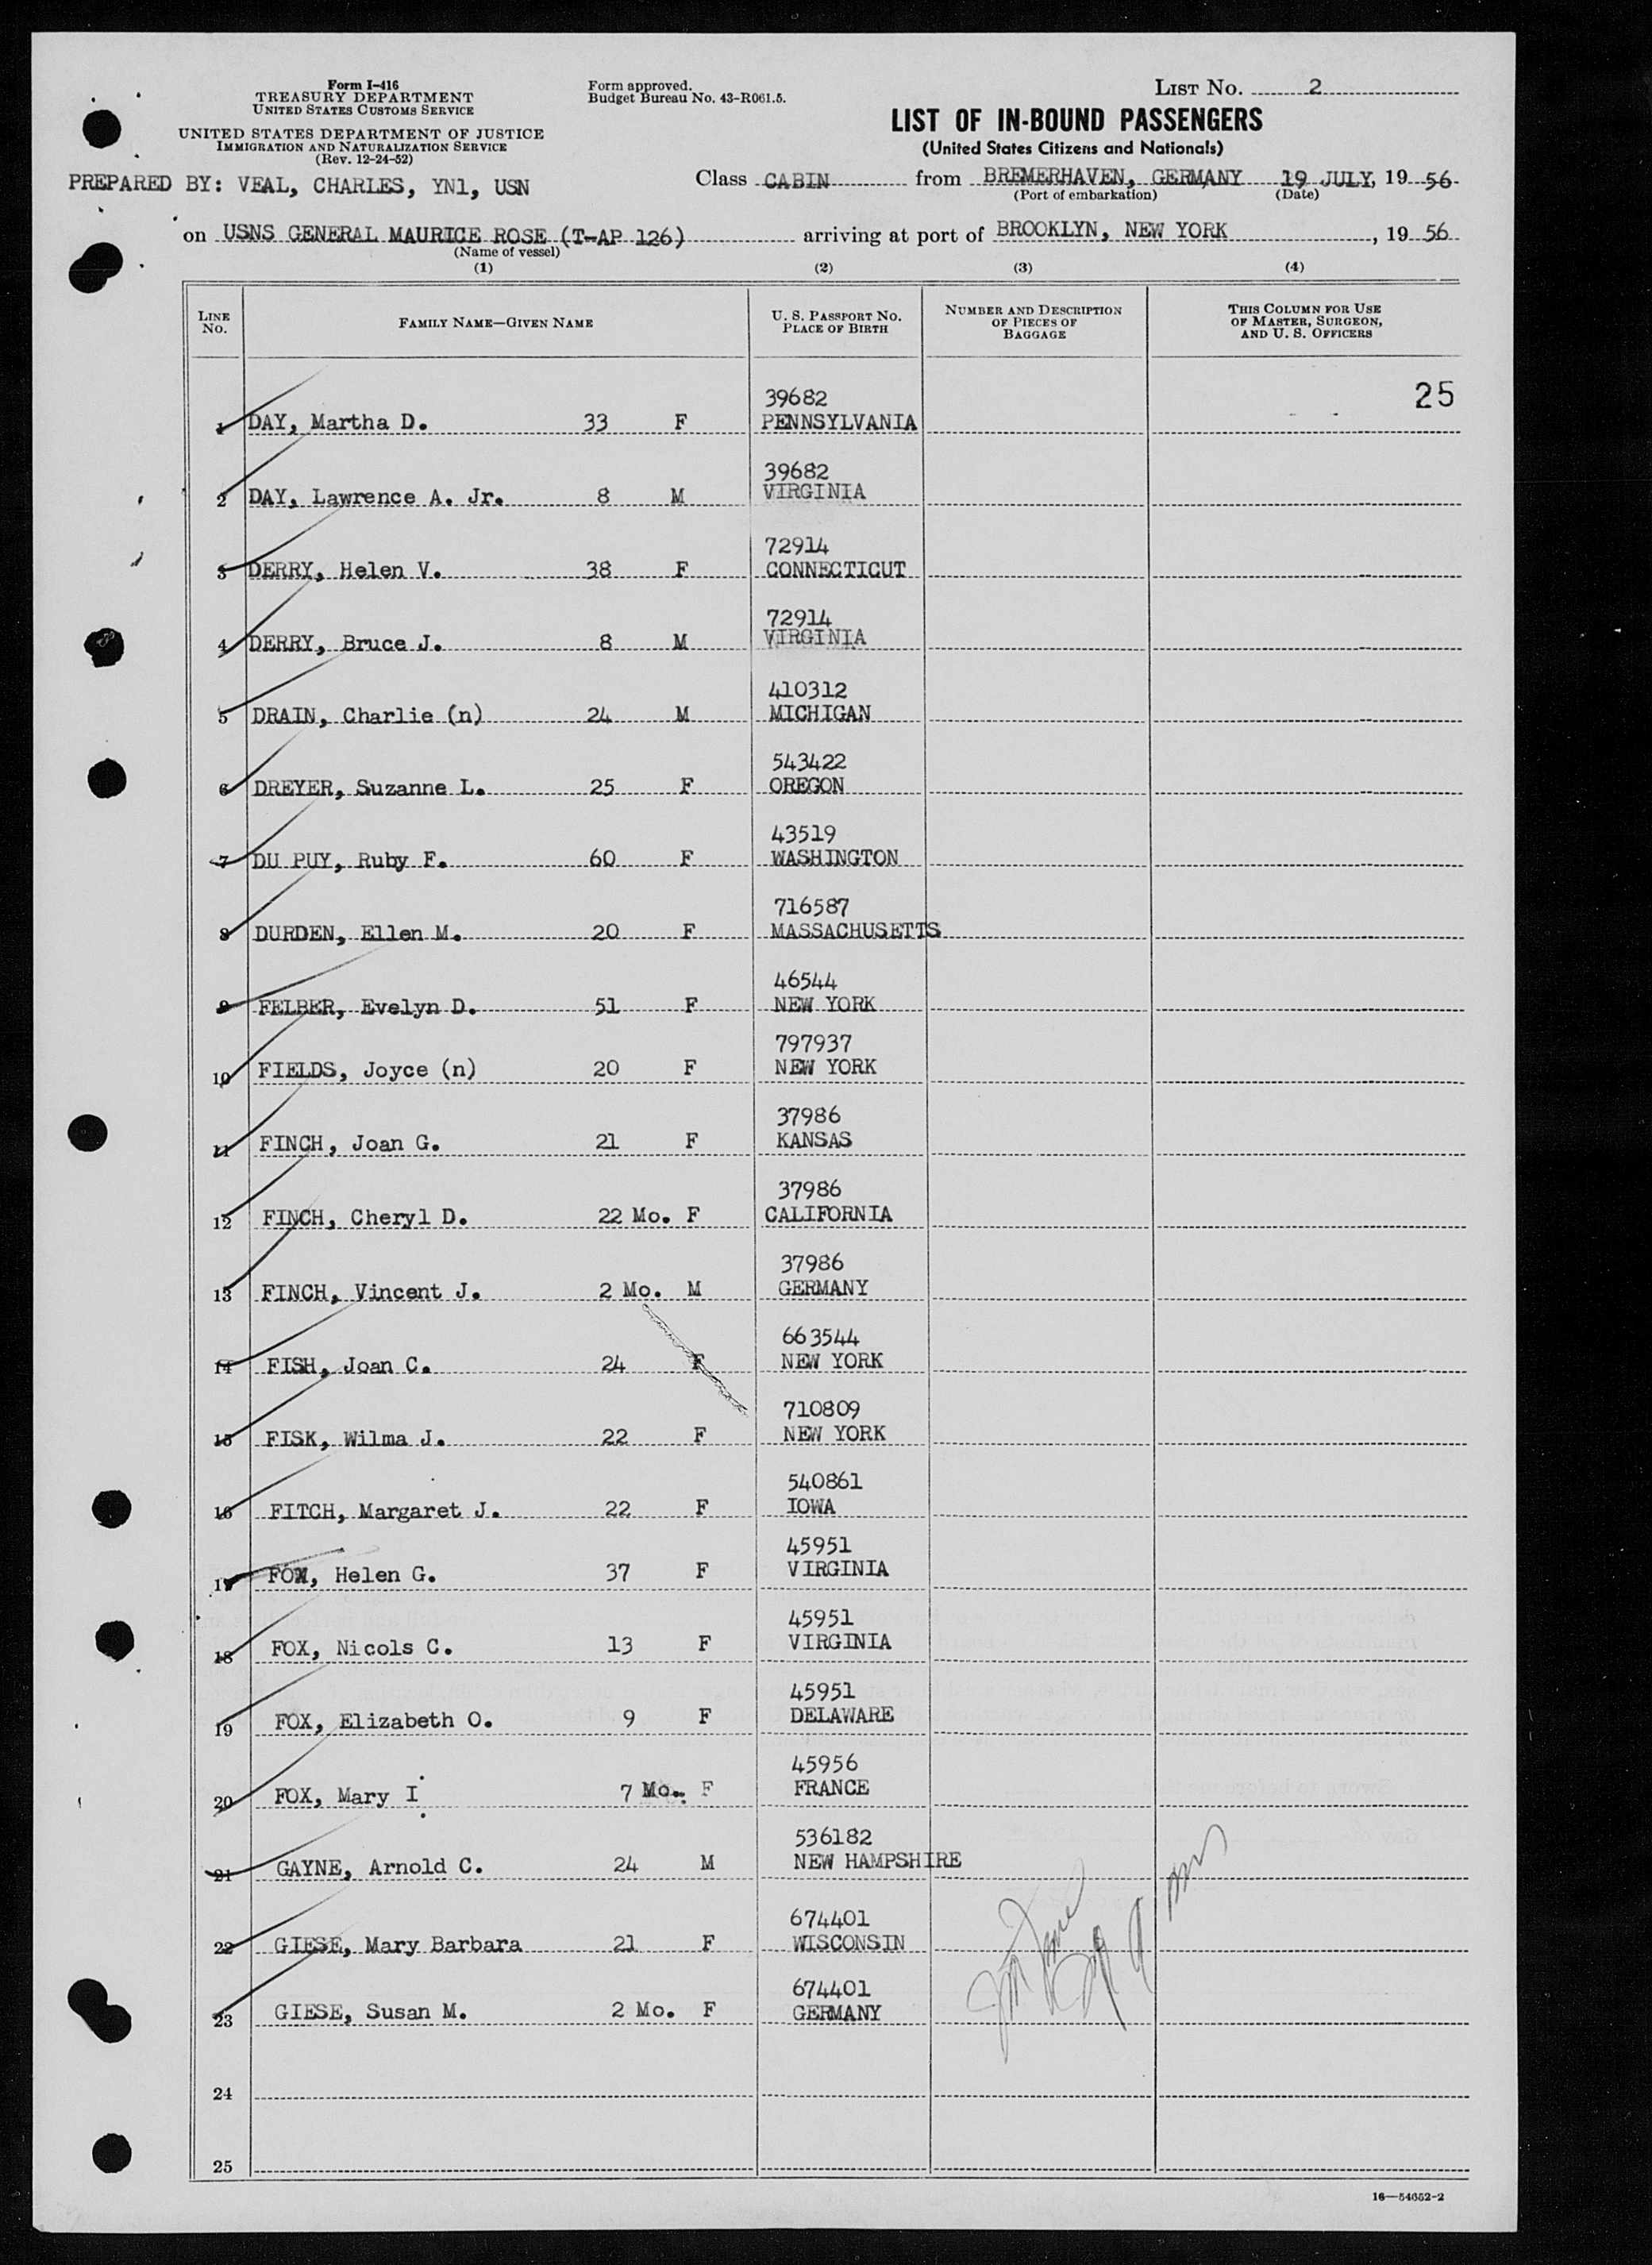 Form I-416
TREASURY DEPARTMENT
UNITED STATES CUSTOMS SERVICE
UNITED STATES DEPARTMENT OF JUSTICE
IMMIGRATION AND NATURALIZATION SERVICE
(Rev. 12-24-52)
Form approved.
Budget Bureau No. 43-R061.5.
LIST No. 2
LIST OF IN-BOUND PASSENGERS
(United States Citizens and Nationals)
PREPARED BY: VEAL, CHARLES, YN1, USN
Class CABIN from BREMERHAVEN, GERMANY 19 JULY, 19 56
(Port of embarkation) (Date)
on USNS GENERAL MAURICE ROSE (T-AP 126) arriving at port of BROOKLYN, NEW YORK, 19 56
(Name of vessel)
(1) (2) (3) (4)
LINE No.
FAMILY NAME—GIVEN NAME
U. S. PASSPORT No.
PLACE OF BIRTH
NUMBER AND DESCRIPTION
OF PIECES OF
BAGGAGE
THIS COLUMN FOR USE
OF MASTER, SURGEON,
AND U. S. OFFICERS
25
39682
1 DAY, Martha D. 33 F PENNSYLVANIA
39682
2 DAY, Lawrence A. Jr. 8 M VIRGINIA
72914
3 DERRY, Helen V. 38 F CONNECTICUT
72914
4 DERRY, Bruce J. 8 M VIRGINIA
410312
5 DRAIN, Charlie (n) 24 M MICHIGAN
543422
6 DREYER, Suzanne L. 25 F OREGON
43519
7 DU PUY, Ruby F. 60 F WASHINGTON
716587
8 DURDEN, Ellen M. 20 F MASSACHUSETTS
46544
9 FELBER, Evelyn D. 51 F NEW YORK
797937
10 FIELDS, Joyce (n) 20 F NEW YORK
37986
11 FINCH, Joan G. 21 F KANSAS
37986
12 FINCH, Cheryl D. 22 Mo. F CALIFORNIA
37986
13 FINCH, Vincent J. 2 Mo. M GERMANY
663544
14 FISH, Joan C. 24 F NEW YORK
710809
15 FISK, Wilma J. 22 F NEW YORK
540861
16 FITCH, Margaret J. 22 F IOWA
45951
17 FOX, Helen G. 37 F VIRGINIA
45951
18 FOX, Nicols C. 13 F VIRGINIA
45951
19 FOX, Elizabeth O. 9 F DELAWARE
45956
20 FOX, Mary I. 7 Mo. F FRANCE
536182
21 GAYNE, Arnold C. 24 M NEW HAMPSHIRE
674401
22 GIESE, Mary Barbara 21 F WISCONSIN
674401
23 GIESE, Susan M. 2 Mo. F GERMANY
24
25
16—54652-2